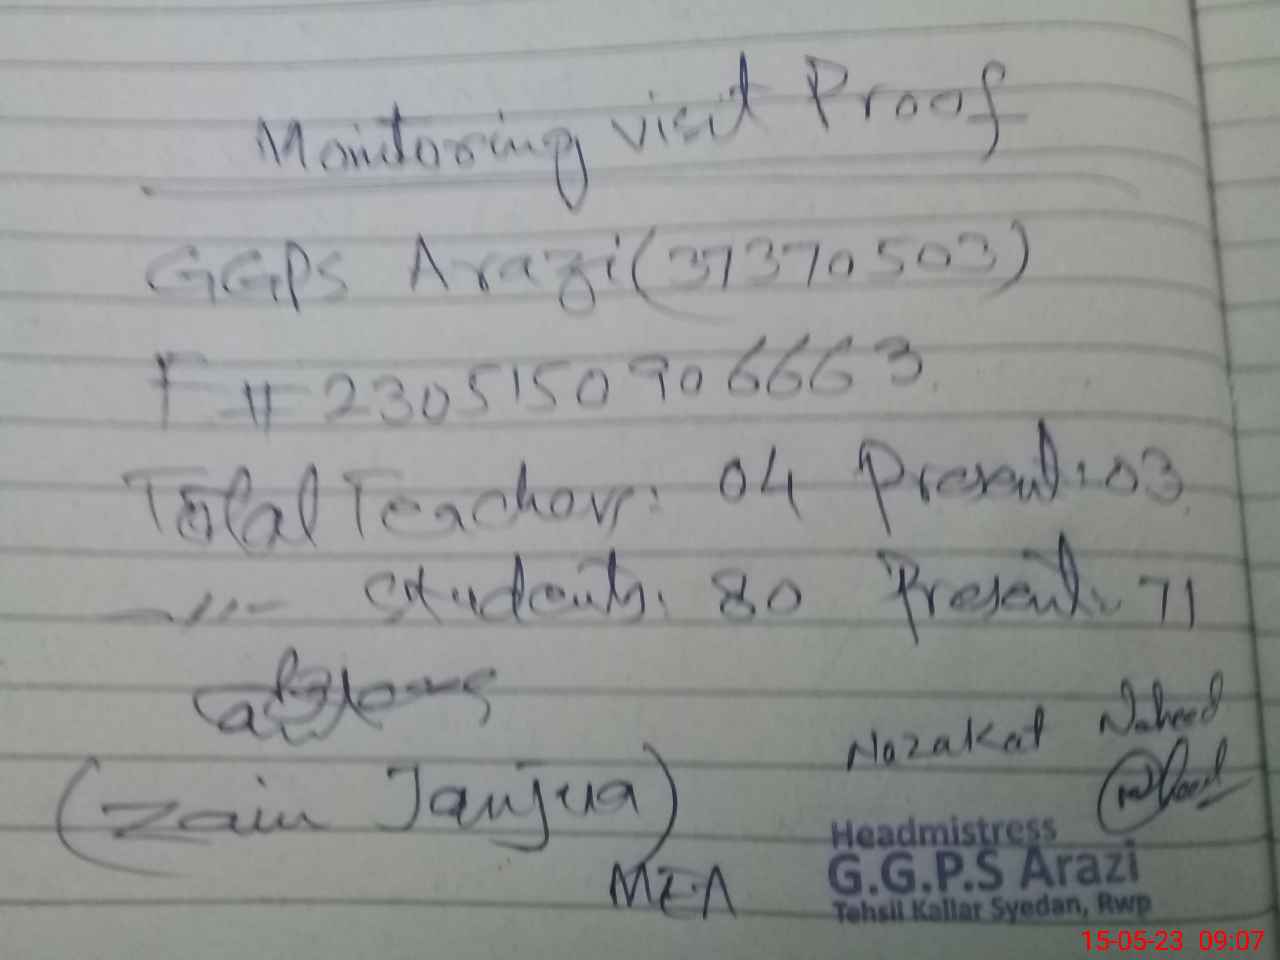 Monitoring visit Proof
GGPS Arazi (37370503)
F # 2305150906663
Total Teachers: 04 Present: 03
-〃- Students: 80 Present: 71
Nazakat Naheed
(Zain Janjua)
MEA
Headmistress
G.G.P.S Arazi
Tehsil Kallar Syedan, Rwp
15-05-23 09:07